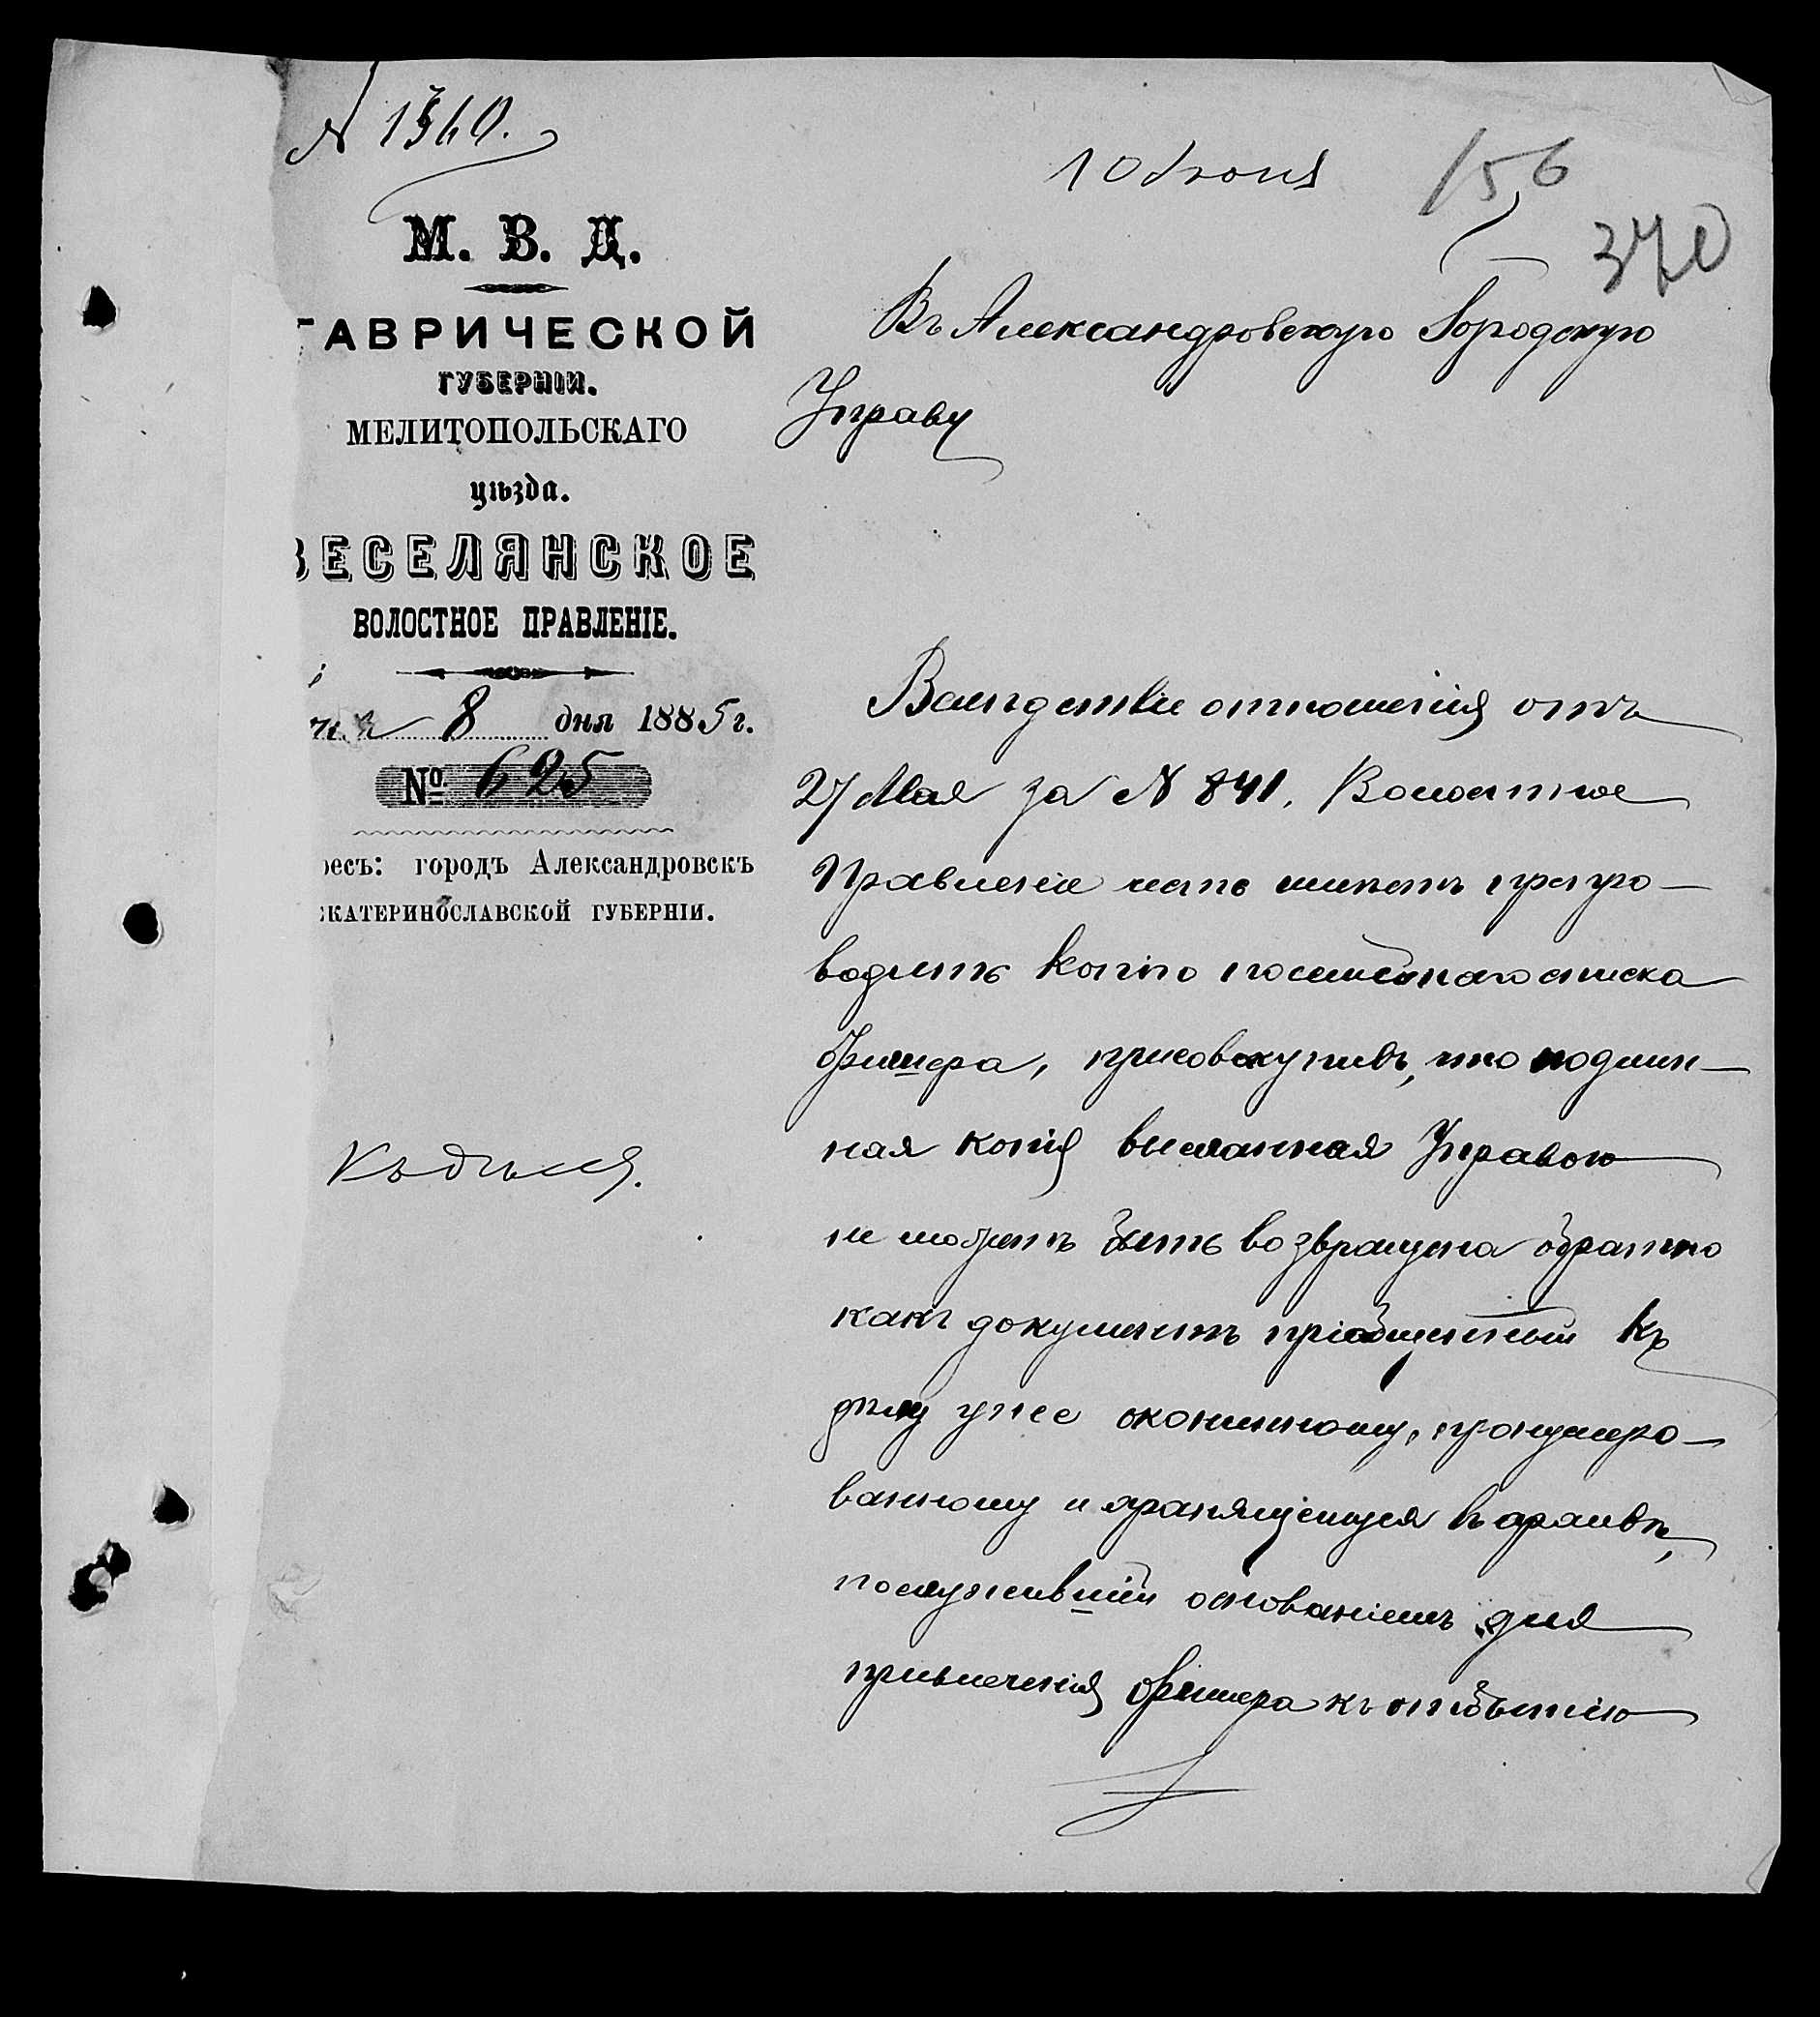 № 1360.
10 Июня
156
370
М. В. Д.
ТАВРИЧЕСКОЙ
ГУБЕРНІИ.
МЕЛИТОПОЛЬСКАГО
уѣзда.
ВЕСЕЛЯНСКОЕ
ВОЛОСТНОЕ ПРАВЛЕНІЕ.
8 дня 1885 г.
№ 625
ресъ: городъ Александровскъ
КАТЕРИНОСЛАВСКОЙ ГУБЕРНІИ.
Къ дѣлу.
Въ Александровскую Городскую
Управу
Вслѣдствіе отношенія отъ
27 Мая за № 841. Волостное
Правленіе честь имѣетъ препро-
водить копію посемейнаго списка
Фришера, присовокупивъ, что подлин-
ная копія высланная Управою
не можетъ быть возвращена обратно
какъ документъ пріобщенный къ
дѣлу уже оконченному, пронумеро-
ванному и хранящемуся въ архивѣ,
послужившій основаніемъ для
привлеченія Фришера къ отбытію